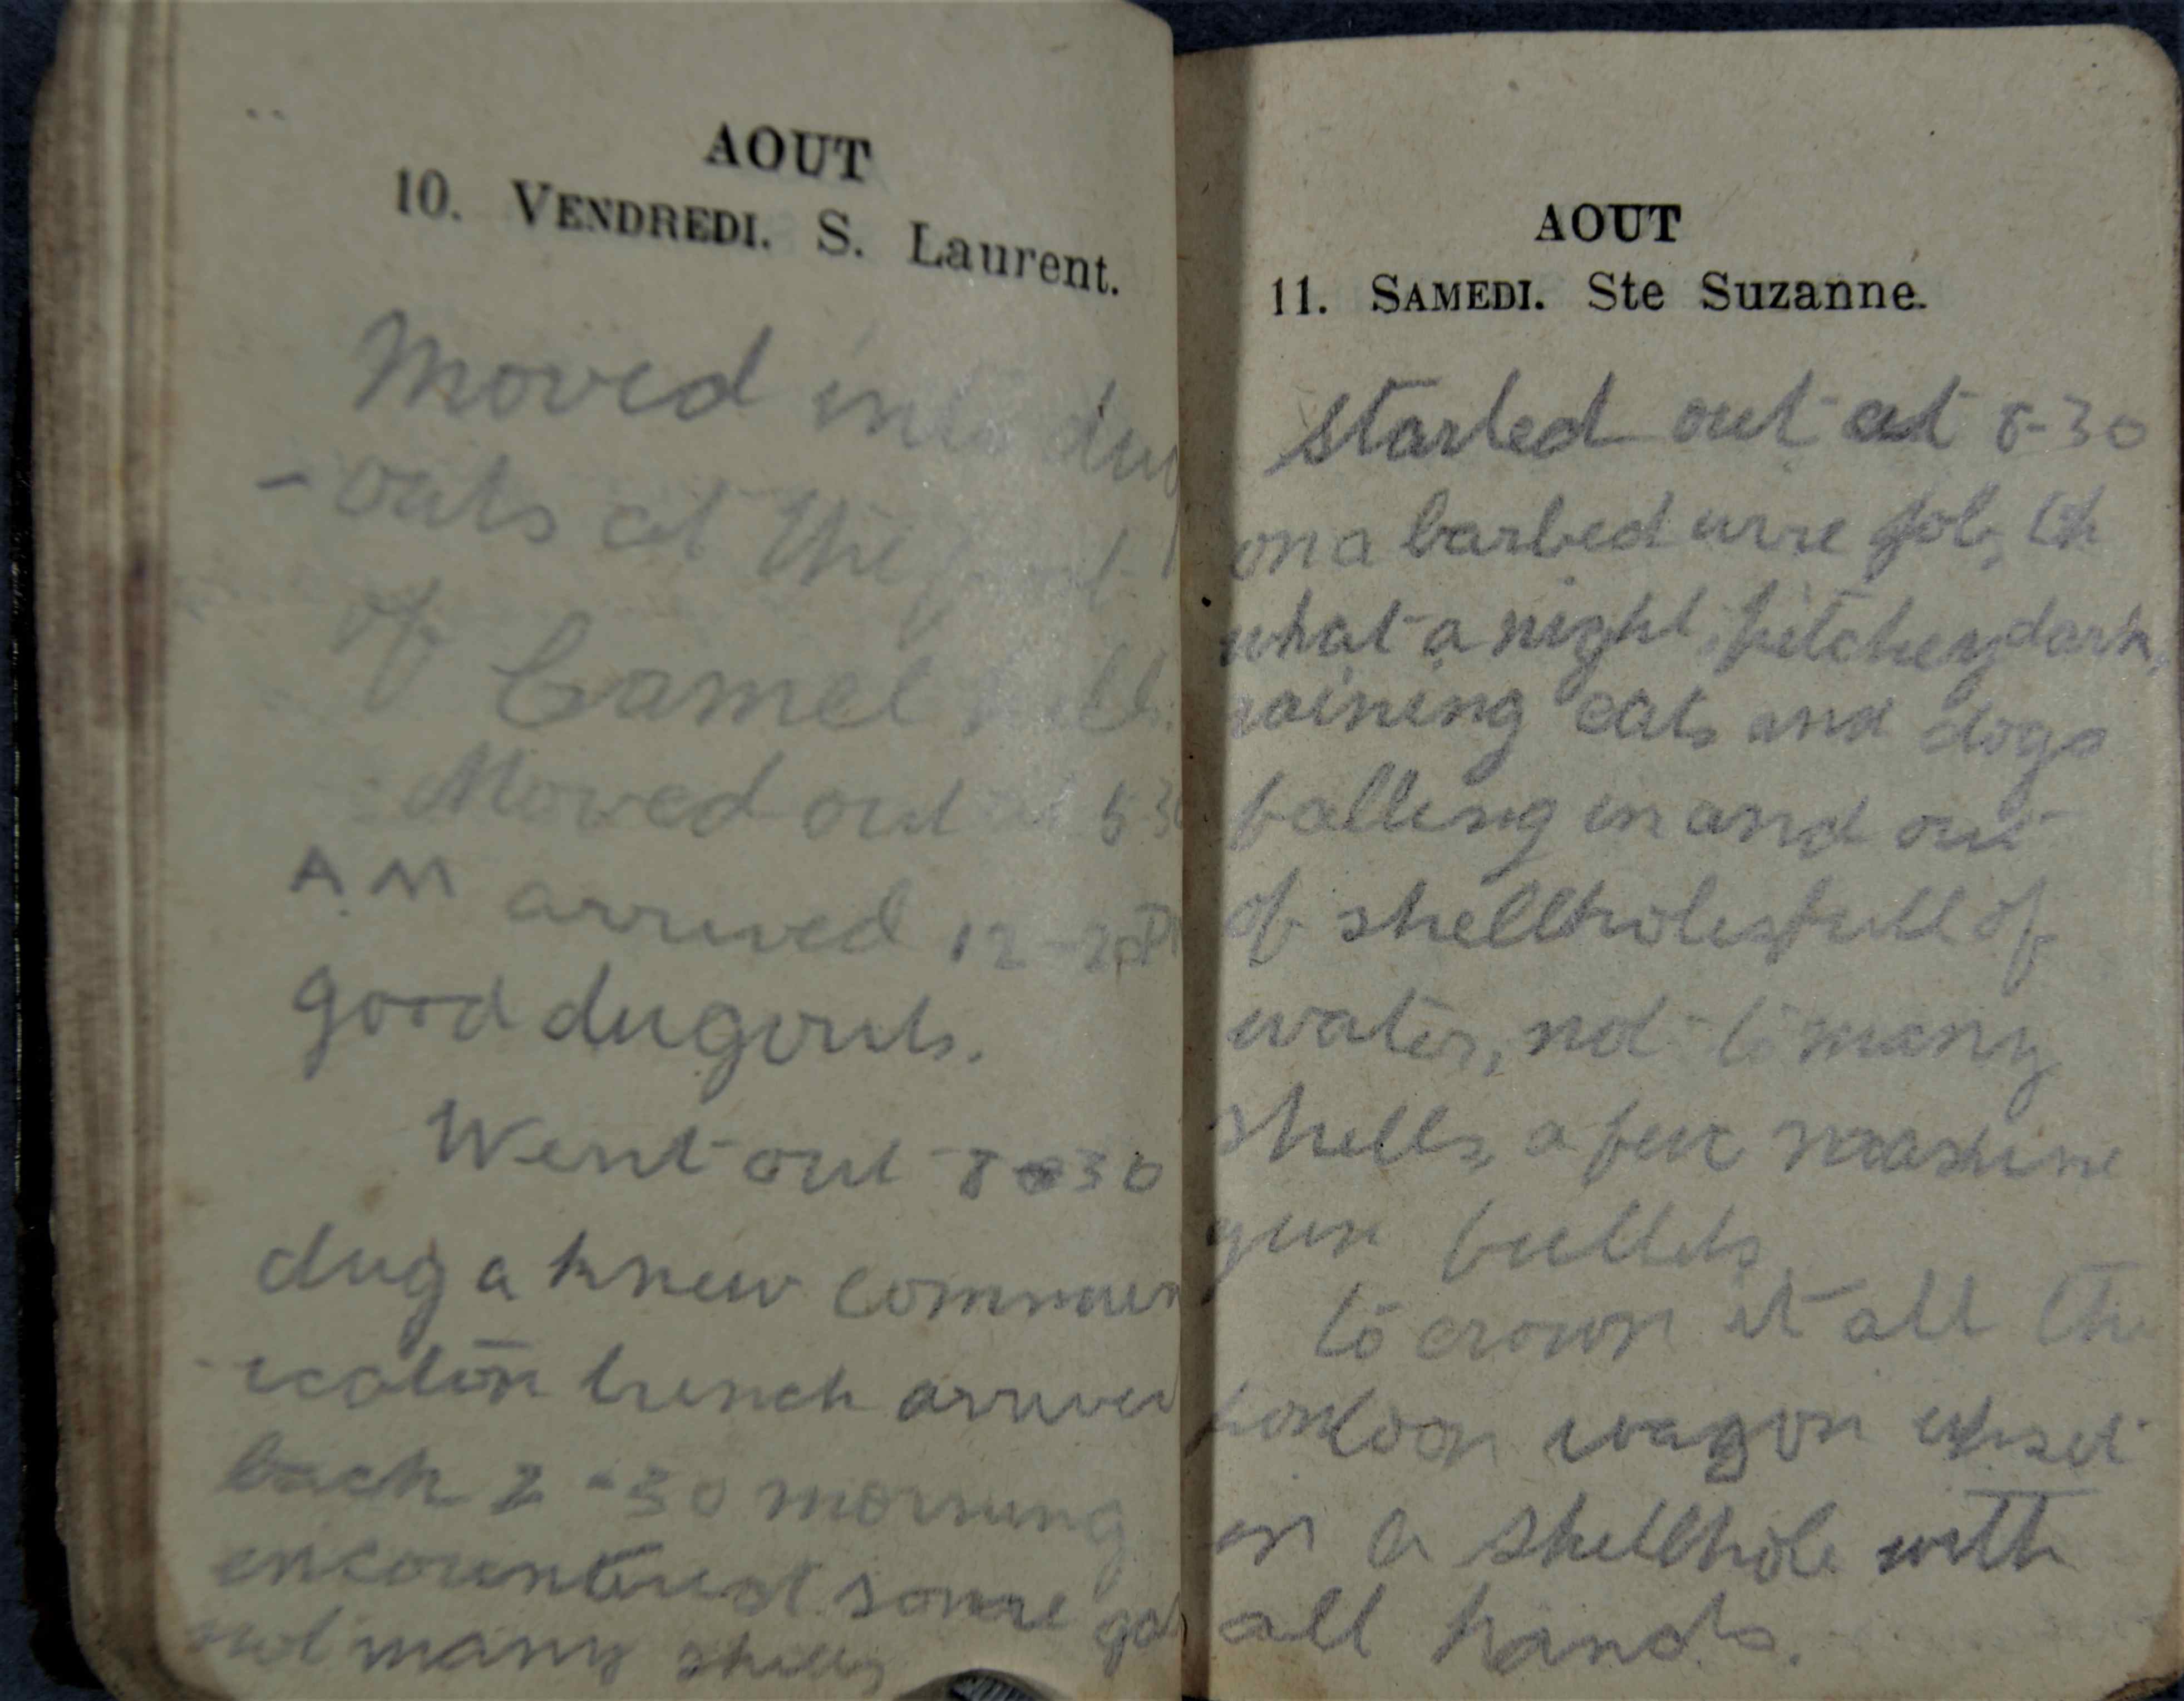 AOUT
10. VENDREDI. S. Laurent.
Moved into dug
- outs at the foot
of Camel hill.
Moved out at 6-30
A.M arrived 12-20 P
good dugouts.
Went out 8-30
dug a knew commun
-ication trench arrived
back 2-30 morning
encountered some gas
not many shells
AOUT
11. SAMEDI. Ste Suzanne.
started out at 8-30
on a barbed wire job, Oh
what a night, pitchey dark,
raining cats and dogs
falling in and out
of shellholes full of
water, not to many
shells, a few mashine
gun bullets
to crown it all the
pontoon wagon upset
in a shellhole with
all hands.